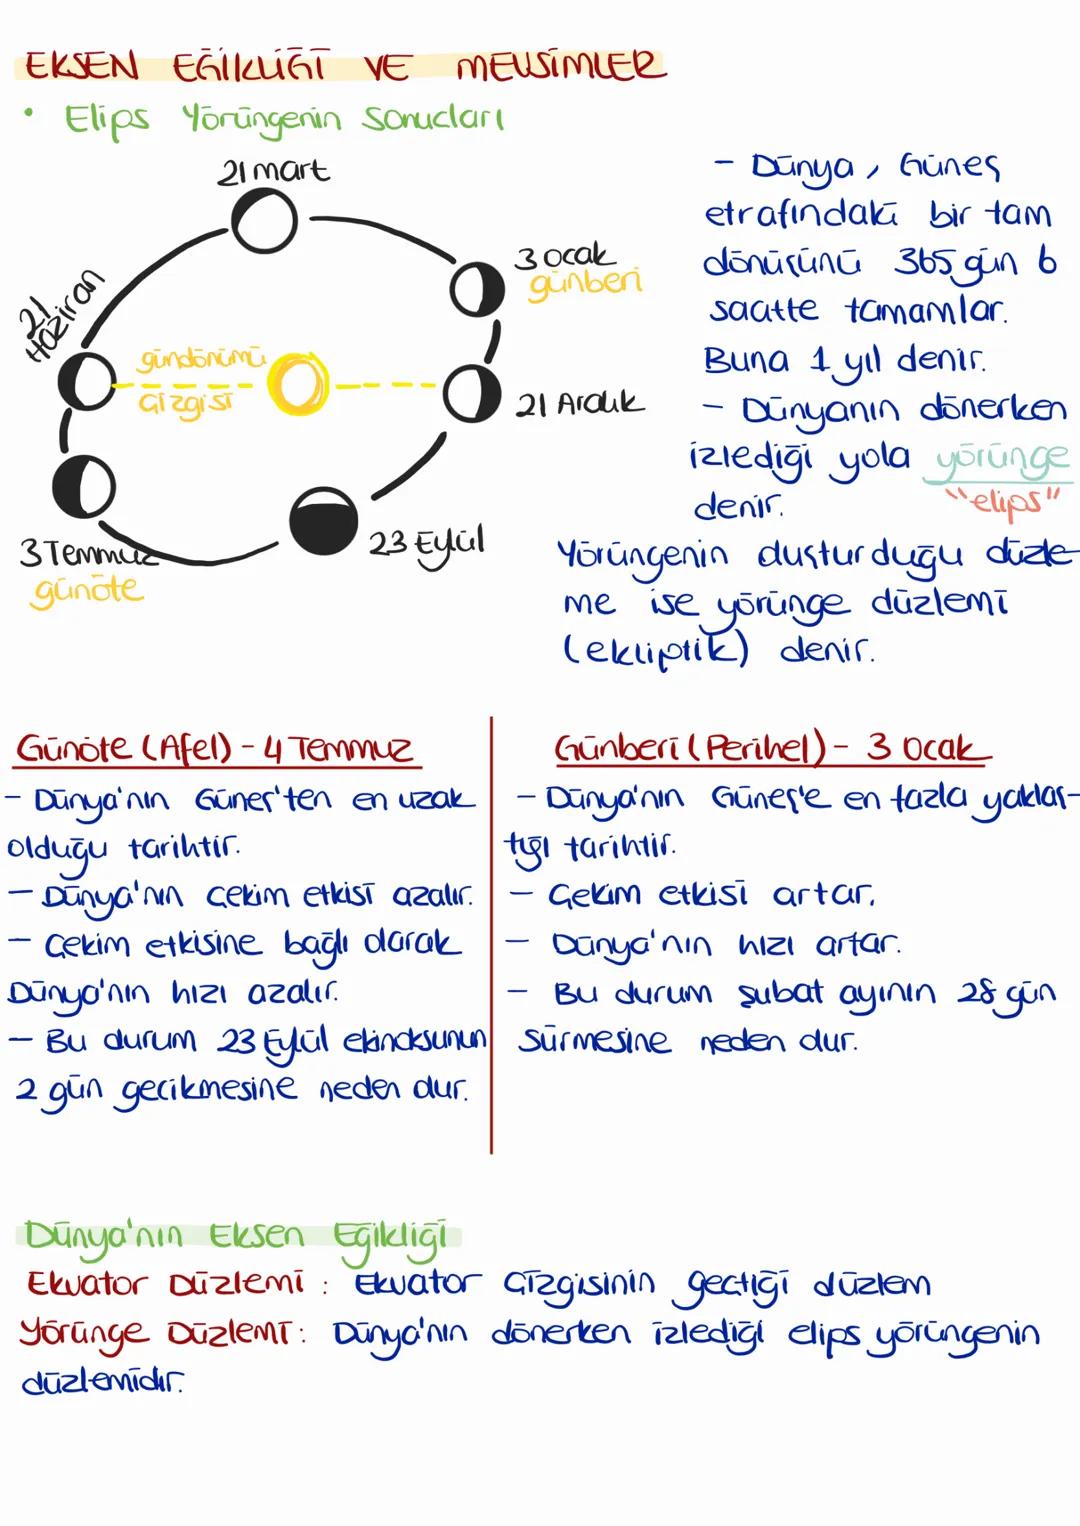 EKSEN EĞİKLİĞİ VE MEVSİMLER
• Elips Yörüngenin Sonucları
21 mart
3 ocak
günberi
21 Haziran
gündönümü
çizgisi
21 Aralık
23 Eylül
3 Temmuz
günöte
- Dünya, Güneş
etrafındaki bir tam
dönüşünü 365 gün 6
saatte tamamlar.
Buna 1 yıl denir.
- Dünyanın dönerken
izlediği yola yörünge
"elips"
denir.
Yörüngenin oluşturduğu düzle-
me ise yörünge düzlemi
(ekliptik) denir.
Günöte (Afel) - 4 Temmuz
- Dünya'nın Güneş'ten en uzak
olduğu tarihtir.
- Dünya'nın çekim etkisi azalır.
- Çekim etkisine bağlı olarak
Dünya'nın hızı azalır.
- Bu durum 23 Eylül ekinoksunun
2 gün gecikmesine neden olur.
Günberi (Perihel) - 3 Ocak
- Dünya'nın Güneş'e en fazla yaklaş-
tığı tarihtir.
- Çekim etkisi artar.
- Dünya'nın hızı artar.
- Bu durum şubat ayının 28 gün
sürmesine neden olur.
Dünya'nın Eksen Eğikliği
Ekvator Düzlemi : Ekvator Çizgisinin geçtiği düzlem
Yörünge Düzlemi : Dünya'nın dönerken izlediği elips yörüngenin
düzlemidir.